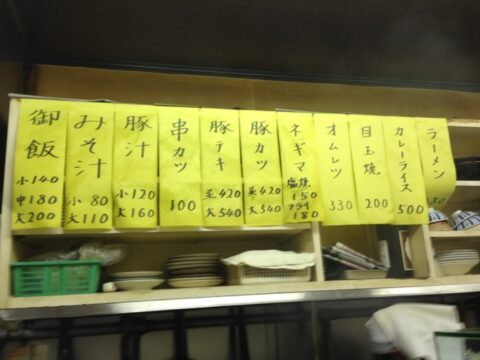 御飯
小140
中180
大200
みそ汁
小80
大110
豚汁
小120
大160
串カツ
100
豚テキ
並420
大540
豚カツ
並420
大540
ネギマ
塩焼
150
フライ
180
オムレツ
330
目玉焼
200
カレーライス
500
ラーメン